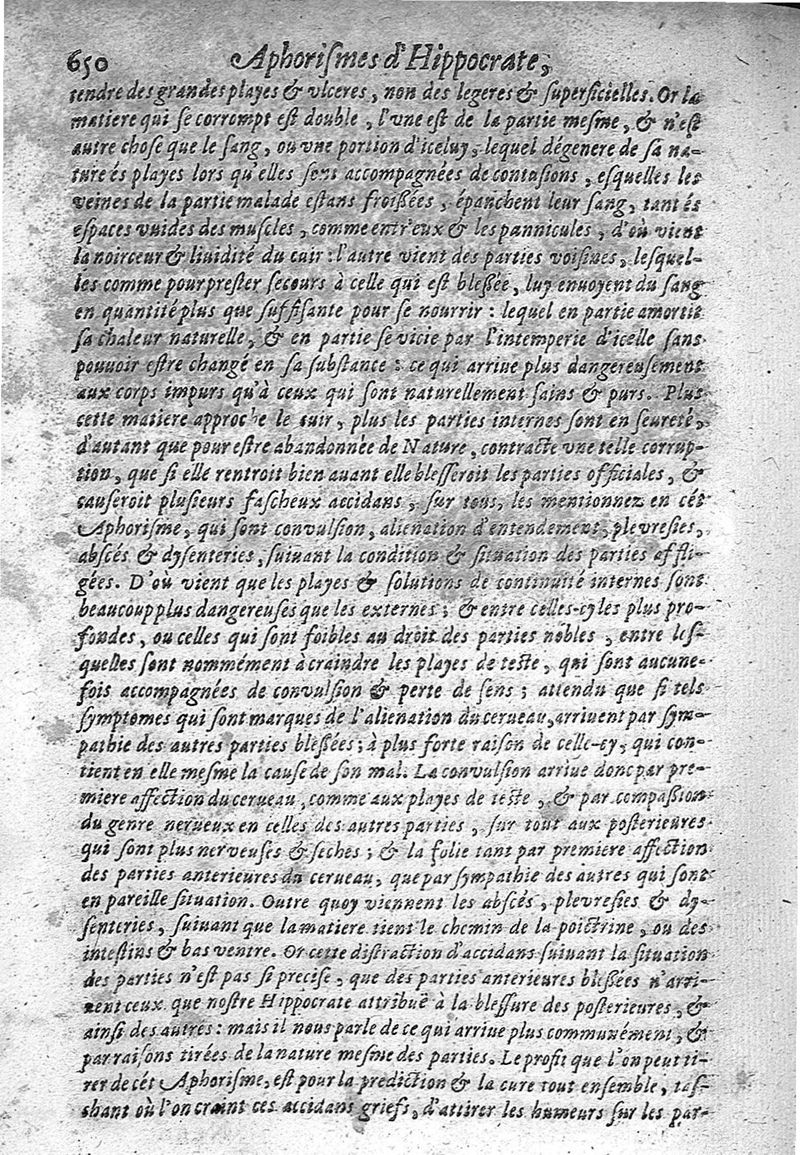 650 Aphorismes d'Hippocrate,
tendre des grandes playes & vlceres, non des legeres & superficielles. Or la
matiere qui se corrompt est double, l'vne est de la partie mesme, & n'est
autre chose que le sang, ou vne portion d'iceluy, lequel dégenere de sa na-
ture és playes lors qu'elles sont accompagnées de contusions, esquelles les
veines de la partie malade estans froißées, épanchent leur sang, tant és
espaces vuides des muscles, comme entr'eux & les pannicules, d'où vient
la noirceur & liuidité du cuir : l'autre vient des parties voisines, lesquel-
les comme pour prester secours à celle qui est bleßée, luy enuoyent du sang
en quantité plus que suffisante pour se nourrir : lequel en partie amortit
sa chaleur naturelle, & en partie se vicie par l'intemperie d'icelle sans
pouuoir estre changé en sa substance : ce qui arriue plus dangereusement
aux corps impurs qu'à ceux qui sont naturellement sains & purs. Plus
cette matiere approche le cuir, plus les parties internes sont en seureté,
d'autant que pour estre abandonnée de Nature, contracte vne telle corrup-
tion, que si elle rentroit bien auant elle blesseroit les parties officiales, &
causeroit plusieurs fascheux accidans, sur tous, les mentionnez en cét
Aphorisme, qui sont conuulsion, alienation d'entendement, plevresies,
abscés & dysenteries, suiuant la condition & situation des parties affli-
gées. D'où vient que les playes & solutions de continuité internes sont
beaucoup plus dangereuses que les externes ; & entre celles-cy les plus pro-
fondes, ou celles qui sont foibles au droit des parties nobles, entre les-
quelles sont nommément à craindre les playes de teste, qui sont aucune-
fois accompagnées de conuulsion & perte de sens ; attendu que si tels
symptomes qui sont marques de l'alienation du cerueau, arriuent par sym-
pathie des autres parties bleßées ; à plus forte raison de celle-cy, qui con-
tient en elle mesme la cause de son mal. La conuulsion arriue donc par pre-
miere affection du cerueau, comme aux playes de teste, & par compaßion
du genre nerueux en celles des autres parties, sur tout aux posterieures
qui sont plus nerveuses & seches ; & la folie tant par premiere affection
des parties anterieures du cerueau, que par sympathie des autres qui sont
en pareille situation. Outre quoy viennent les abscés, plevresies & dy-
senteries, suiuant que la matiere tient le chemin de la poictrine, ou des
intestins & bas ventre. Or cette distraction d'accidans suiuant la situation
des parties n'est pas si precise, que des parties anterieures bleßées n'arri-
uent ceux que nostre Hippocrate attribuë à la blessure des posterieures, &
ainsi des autres : mais il nous parle de ce qui arriue plus communément, &
par raisons tirées de la nature mesme des parties. Le profit que l'on peut ti-
rer de cét Aphorisme, est pour la prediction & la cure tout ensemble, tas-
chant où l'on craint ces accidans griefs, d'attirer les humeurs sur les par-